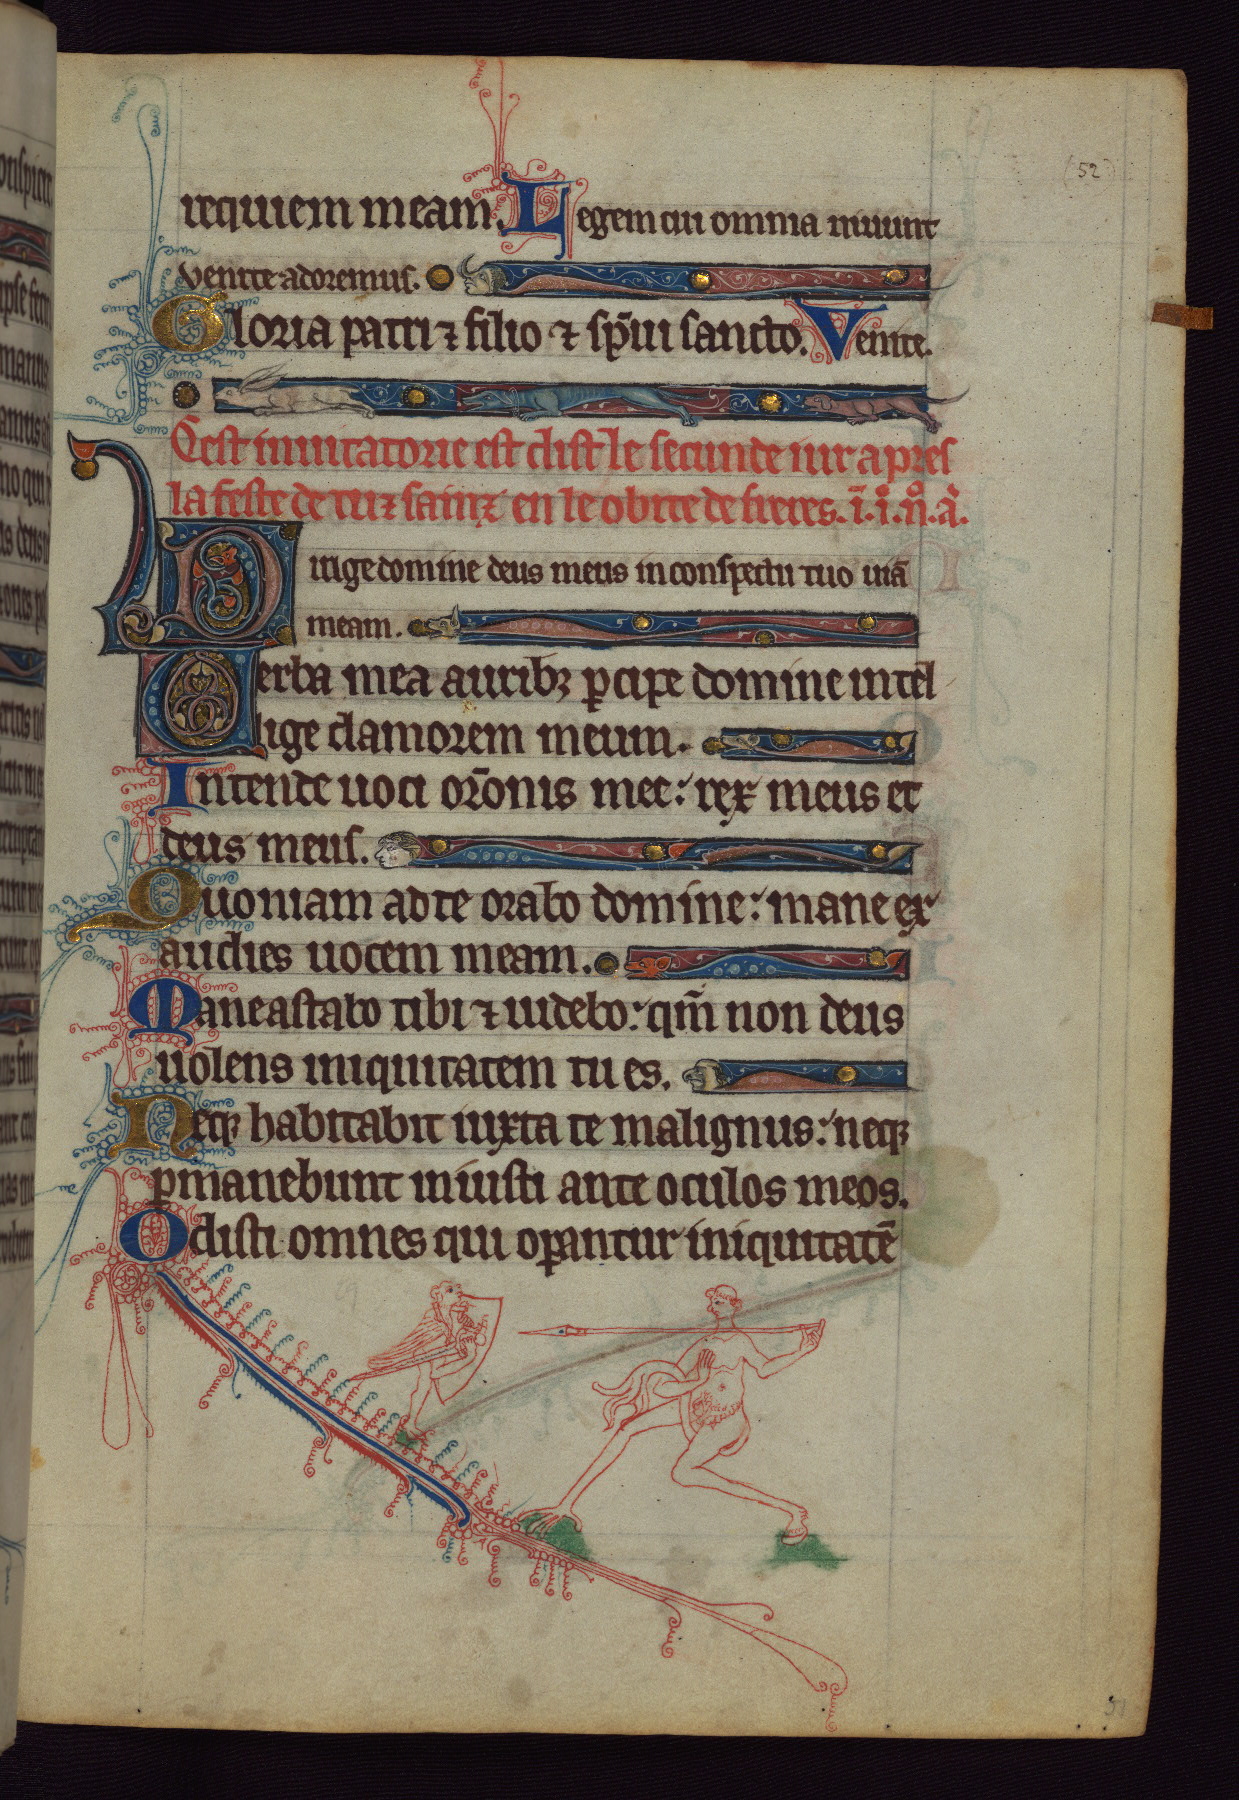 (52)
requiem meam. Legem cui omnia uiuunt
venite adoremus.
Gloria patri ⁊ filio ⁊ sp̄ui sancto. Venite.
Cest inuitatorie est dist le secunde iur apres
la feste de tuz sainz en le obite de freres. i. i. n. a.
Dirige domine deus meus in conspectu tuo uiā
meam.
Verba mea auribꝫ ꝑcipe domine intel
lige clamorem meum.
Intende uoci or̄onis mee: rex meus et
deus meus.
Quoniam ad te orabo domine: mane ex
audies uocem meam.
Mane astabo tibi ⁊ uidebo: qm̄ non deus
uolens iniquitatem tu es.
Neqꝫ habitabit iuxta te malignus: neqꝫ
ꝑmanebunt iniusti ante oculos meos.
Odisti omnes qui oꝑantur iniquitatē